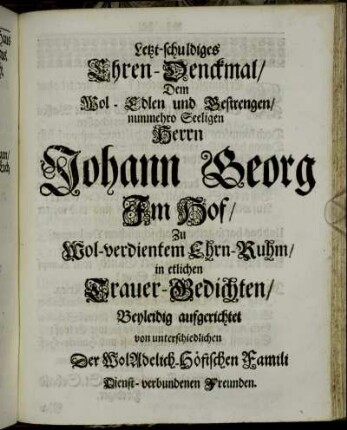 Letzt-schuldiges
Ehren-Denckmal/
Dem
Wol-Edlen und Gestrengen/
nunmehro Seeligen
Herrn
Johann Georg
Im Hof/
Zu
Wol-verdientem Ehrn-Ruhm/
in etlichen
Trauer-Gedichten/
Beyleidig aufgerichtet
von unterschiedlichen
Der WolAdelich-Höfischen Famili
Dienst-verbundenen Freunden.